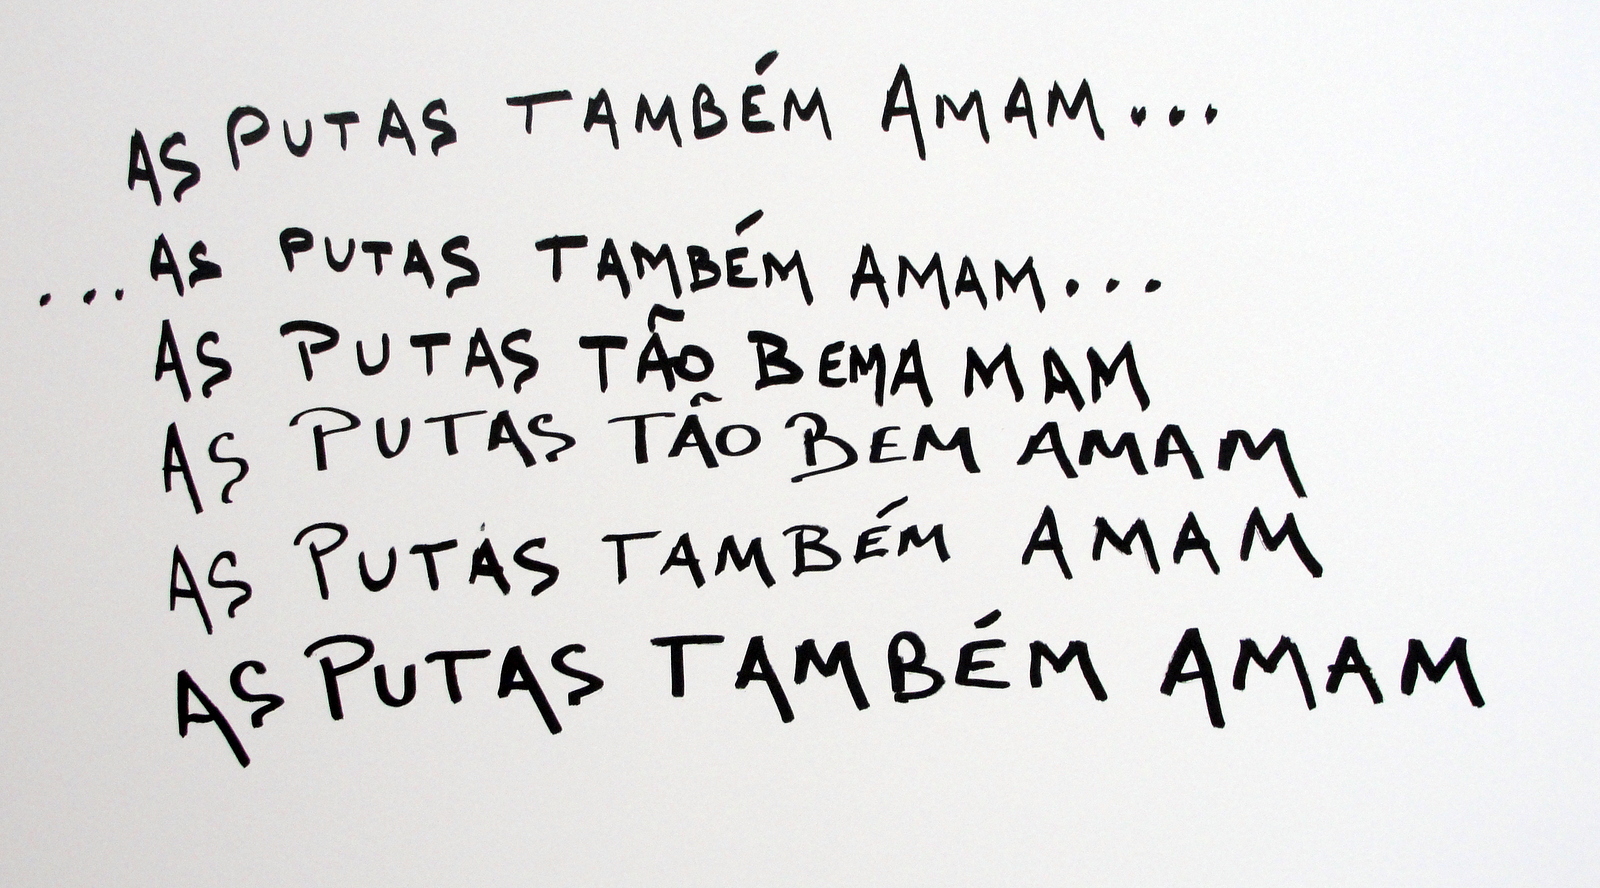 AS PUTAS TAMBÉM AMAM...
...AS PUTAS TAMBÉM AMAM...
AS PUTAS TÃO BEMA MAM
AS PUTAS TÃO BEM AMAM
AS PUTAS TAMBÉM AMAM
AS PUTAS TAMBÉM AMAM